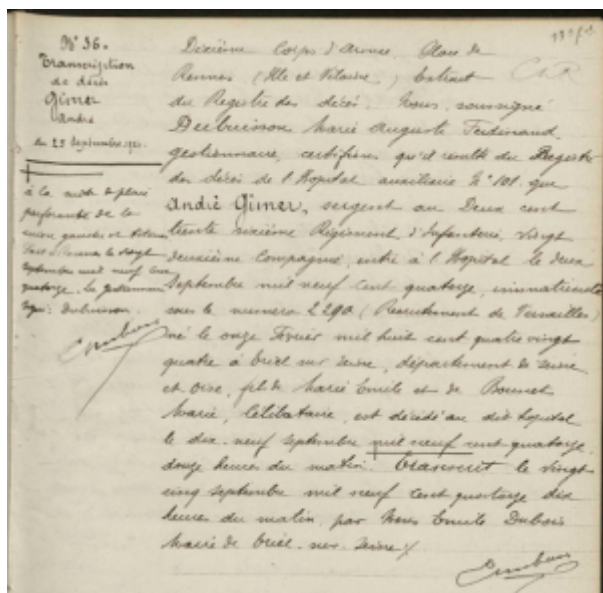 N° 36.
Transcription
de décès
Gimer
André
du 25 Septembre 19
à la suite de plaie
perforante de la
cuisse gauche et tétanos
fait à Rennes le vingt
septembre mil neuf cent
quatorze. Le gestionnaire
signé: Dubuisson
Dixième Corps d'Armée. Place de
Rennes (Ille et Vilaine) Extrait
du Registre des décès. Nous, soussigné
Dubuisson Marie Auguste Ferdinand,
gestionnaire, certifions qu'il résulte du Registre
des décès de l'Hopital auxiliaire N° 101, que
André Gimer, sergent au Deux cent
trente sixième Régiment d'Infanterie, vingt
deuxième Compagnie, entré à l'Hopital le deux
Septembre mil neuf cent quatorze, immatriculé
sous le numéro 2290 (Recrutement de Versailles)
né le onze Février mil huit cent quatre vingt
quatre à Triel sur Seine, département de Seine
et Oise, fils de Marie Emile et de Bonnet
Marie, célibataire, est décédé au dit hopital
le dix-neuf septembre mil neuf cent quatorze
douze heures du matin. Transcrit le vingt
cinq septembre mil neuf cent quatorze dix
heures du matin, par Nous Emile Dubois
Maire de Triel-sur-Seine